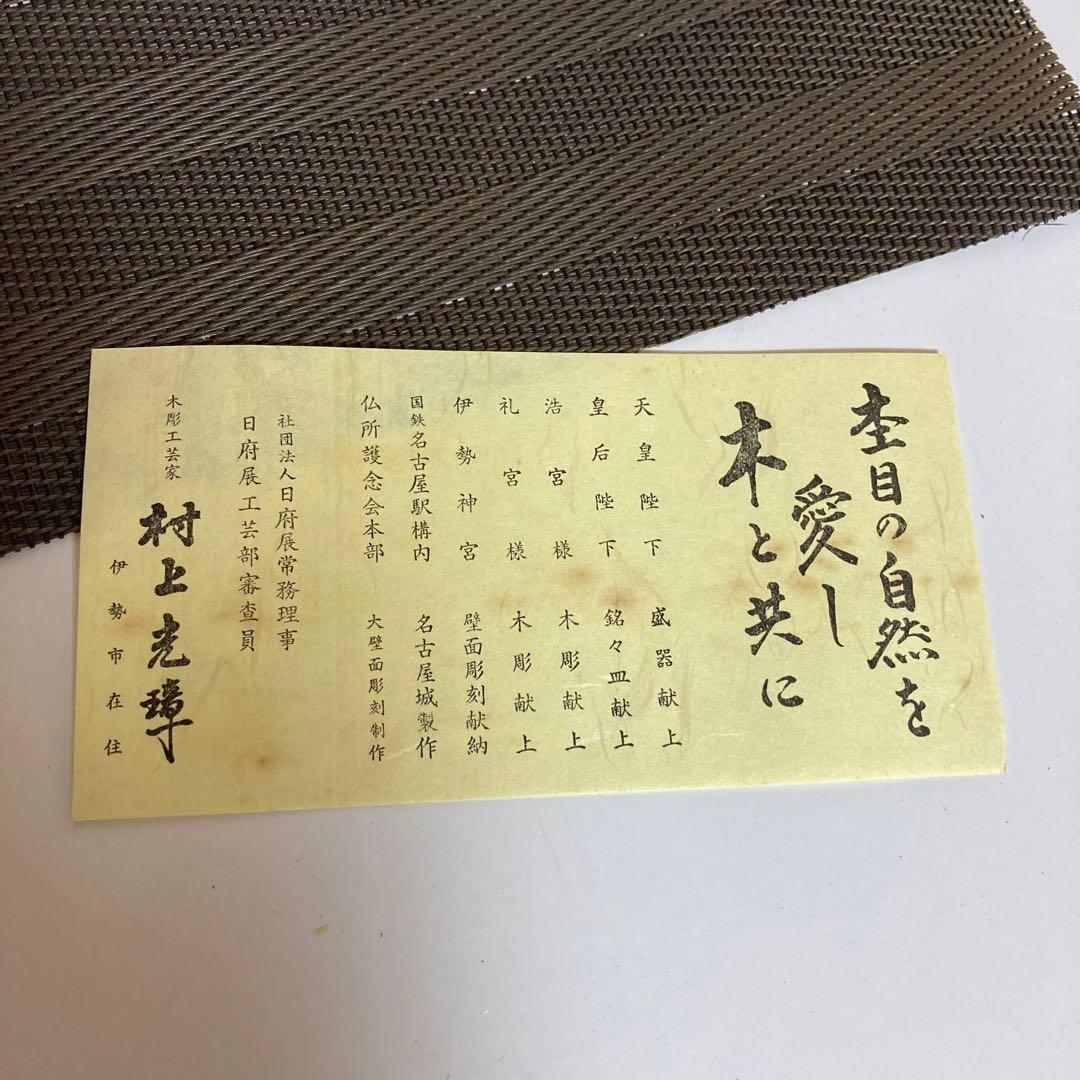 杢目の自然を
愛し
木と共に
天皇陛下 盛器献上
皇后陛下 銘々皿献上
浩宮様 木彫献上
礼宮様 木彫献上
伊勢神宮 壁面彫刻献納
国鉄名古屋駅構内 名古屋城製作
仏所護念会本部 大壁面彫刻制作
社団法人日府展常務理事
日府展工芸部審査員
木彫工芸家 村上光璋
伊勢市在住